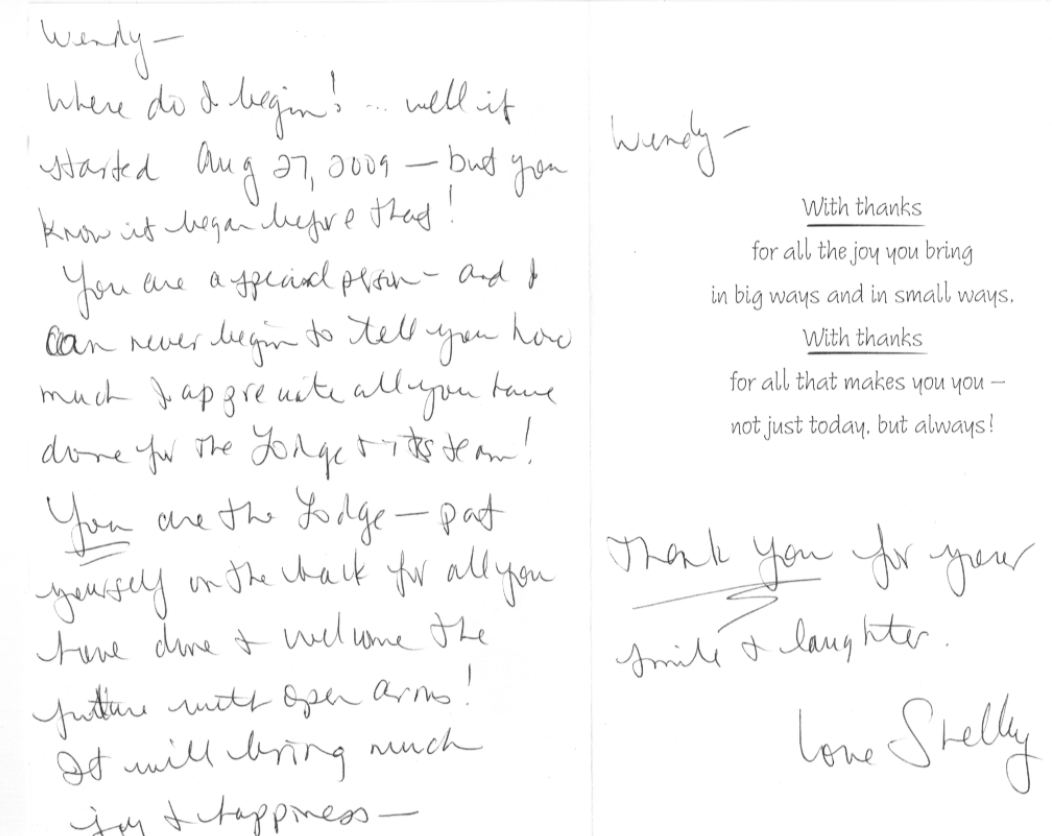 Wendy —
Where do I begin! ... well it
started Aug 27, 2009 — but you
know it began before that!
You are a special person — and I
can never begin to tell you how
much I appreciate all you have
done for the Lodge & its team!
You are the Lodge — pat
yourself on the back for all you
have done & welcome the
future with open arms!
It will bring much
joy & happiness —
Wendy —
With thanks
for all the joy you bring
in big ways and in small ways.
With thanks
for all that makes you you —
not just today, but always!
Thank you for your
smile & laughter.
Love Shelly